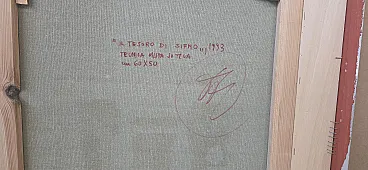 "IL TESORO DI SIFNO", 1993
TECNICA MISTA SU TELA
cm 60X50